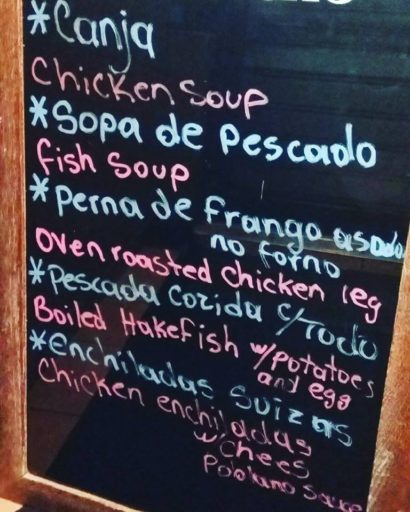 *Canja
Chicken Soup
*Sopa de Pescado
fish Soup
*Perna de frango asado
no forno
oven roasted chicken leg
*Pescada Cozida c/Todo
Boiled Hakefish w/potatoes
and egg
*enchiladas Suizas
Chicken enchiladas
w/Chees
Poblano Sauce